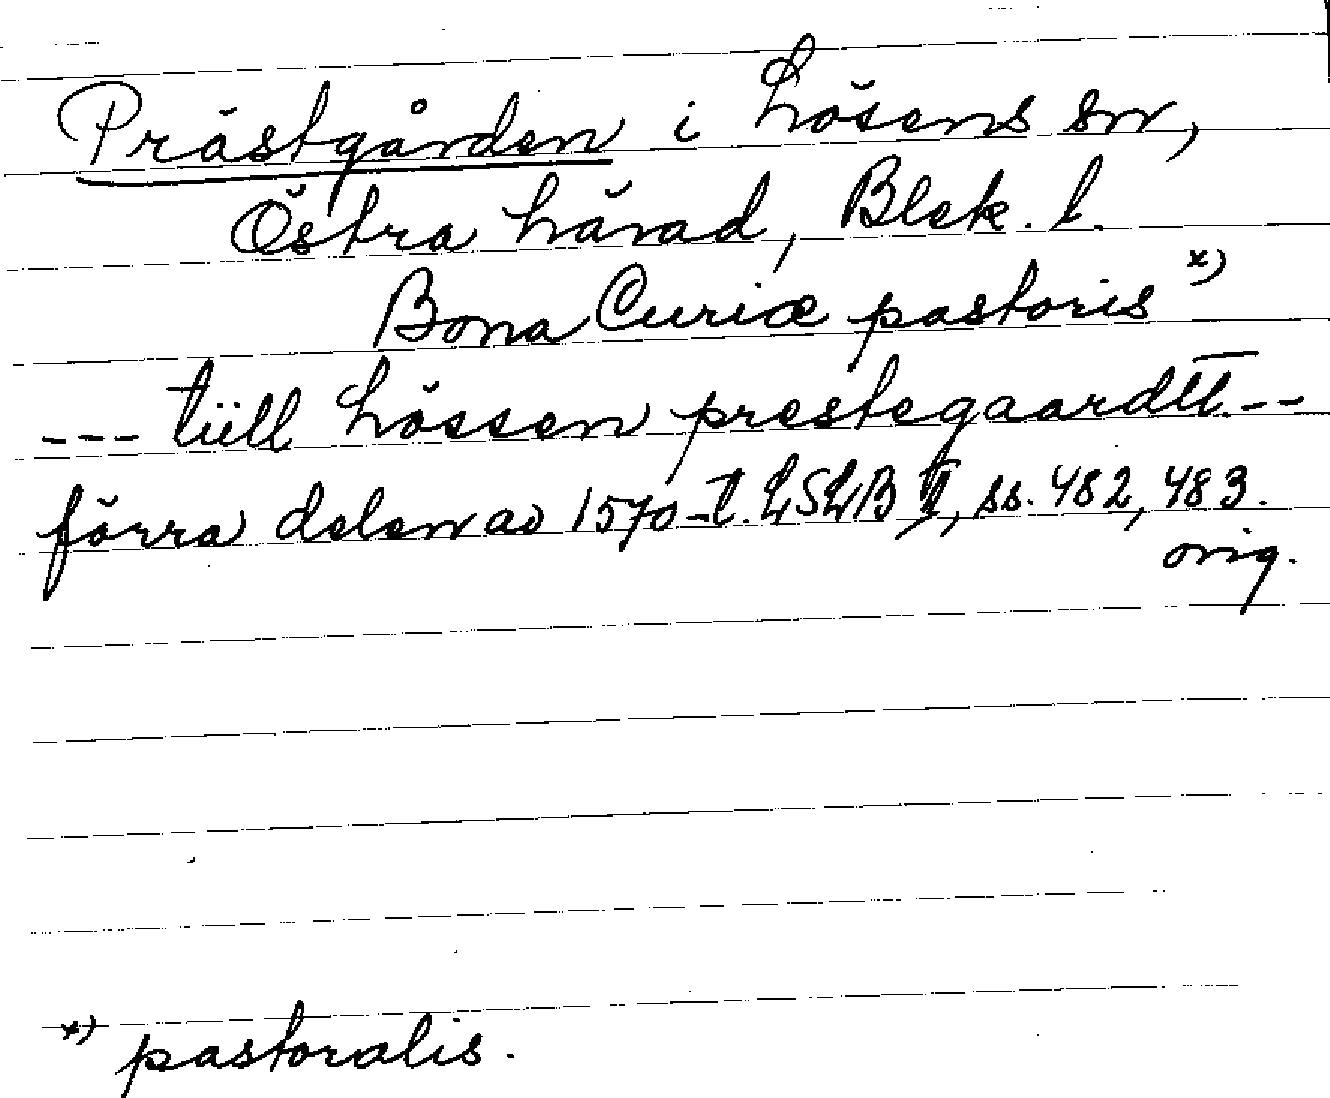 Prästgården i Lösens sn,
Östra härad, Blek. l.
Bona Curiæ pastoris x)
--- tüll Lössen prestegaardtt --
förra delen av 1570-t. LSLB II, ss. 482, 483.
orig.
x) pastoralis.